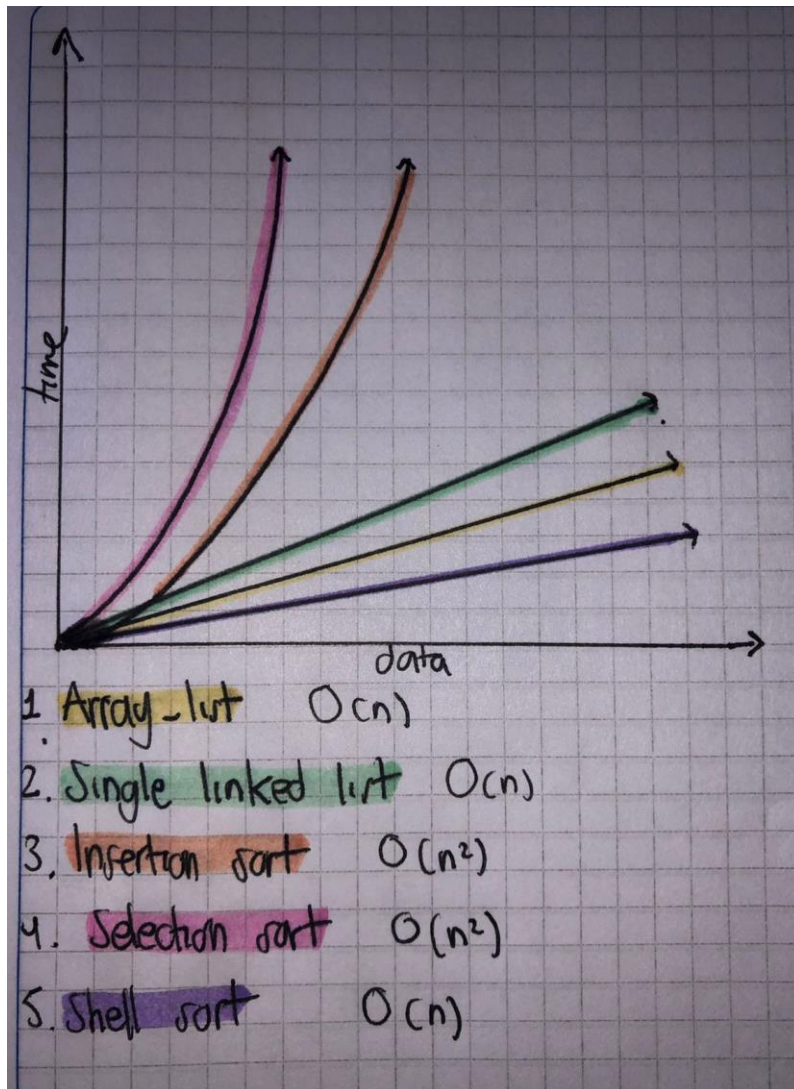 time
data
1. Array-list O(n)
2. Single linked list O(n)
3. Insertion sort O(n²)
4. Selection sort O(n²)
5. Shell sort O(n)